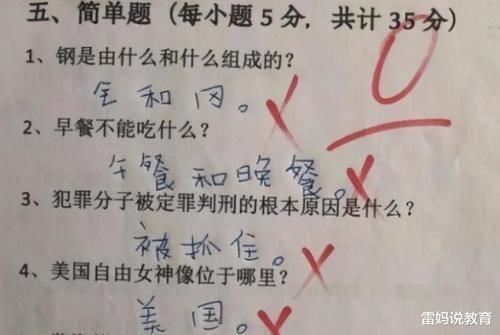 五、简单题（每小题5分，共计35分）
0
1、钢是由什么和什么组成的？
全和冈。
2、早餐不能吃什么？
午餐和晚餐。
3、犯罪分子被定罪判刑的根本原因是什么？
被抓住。
4、美国自由女神像位于哪里？
美国。
雷妈说教育